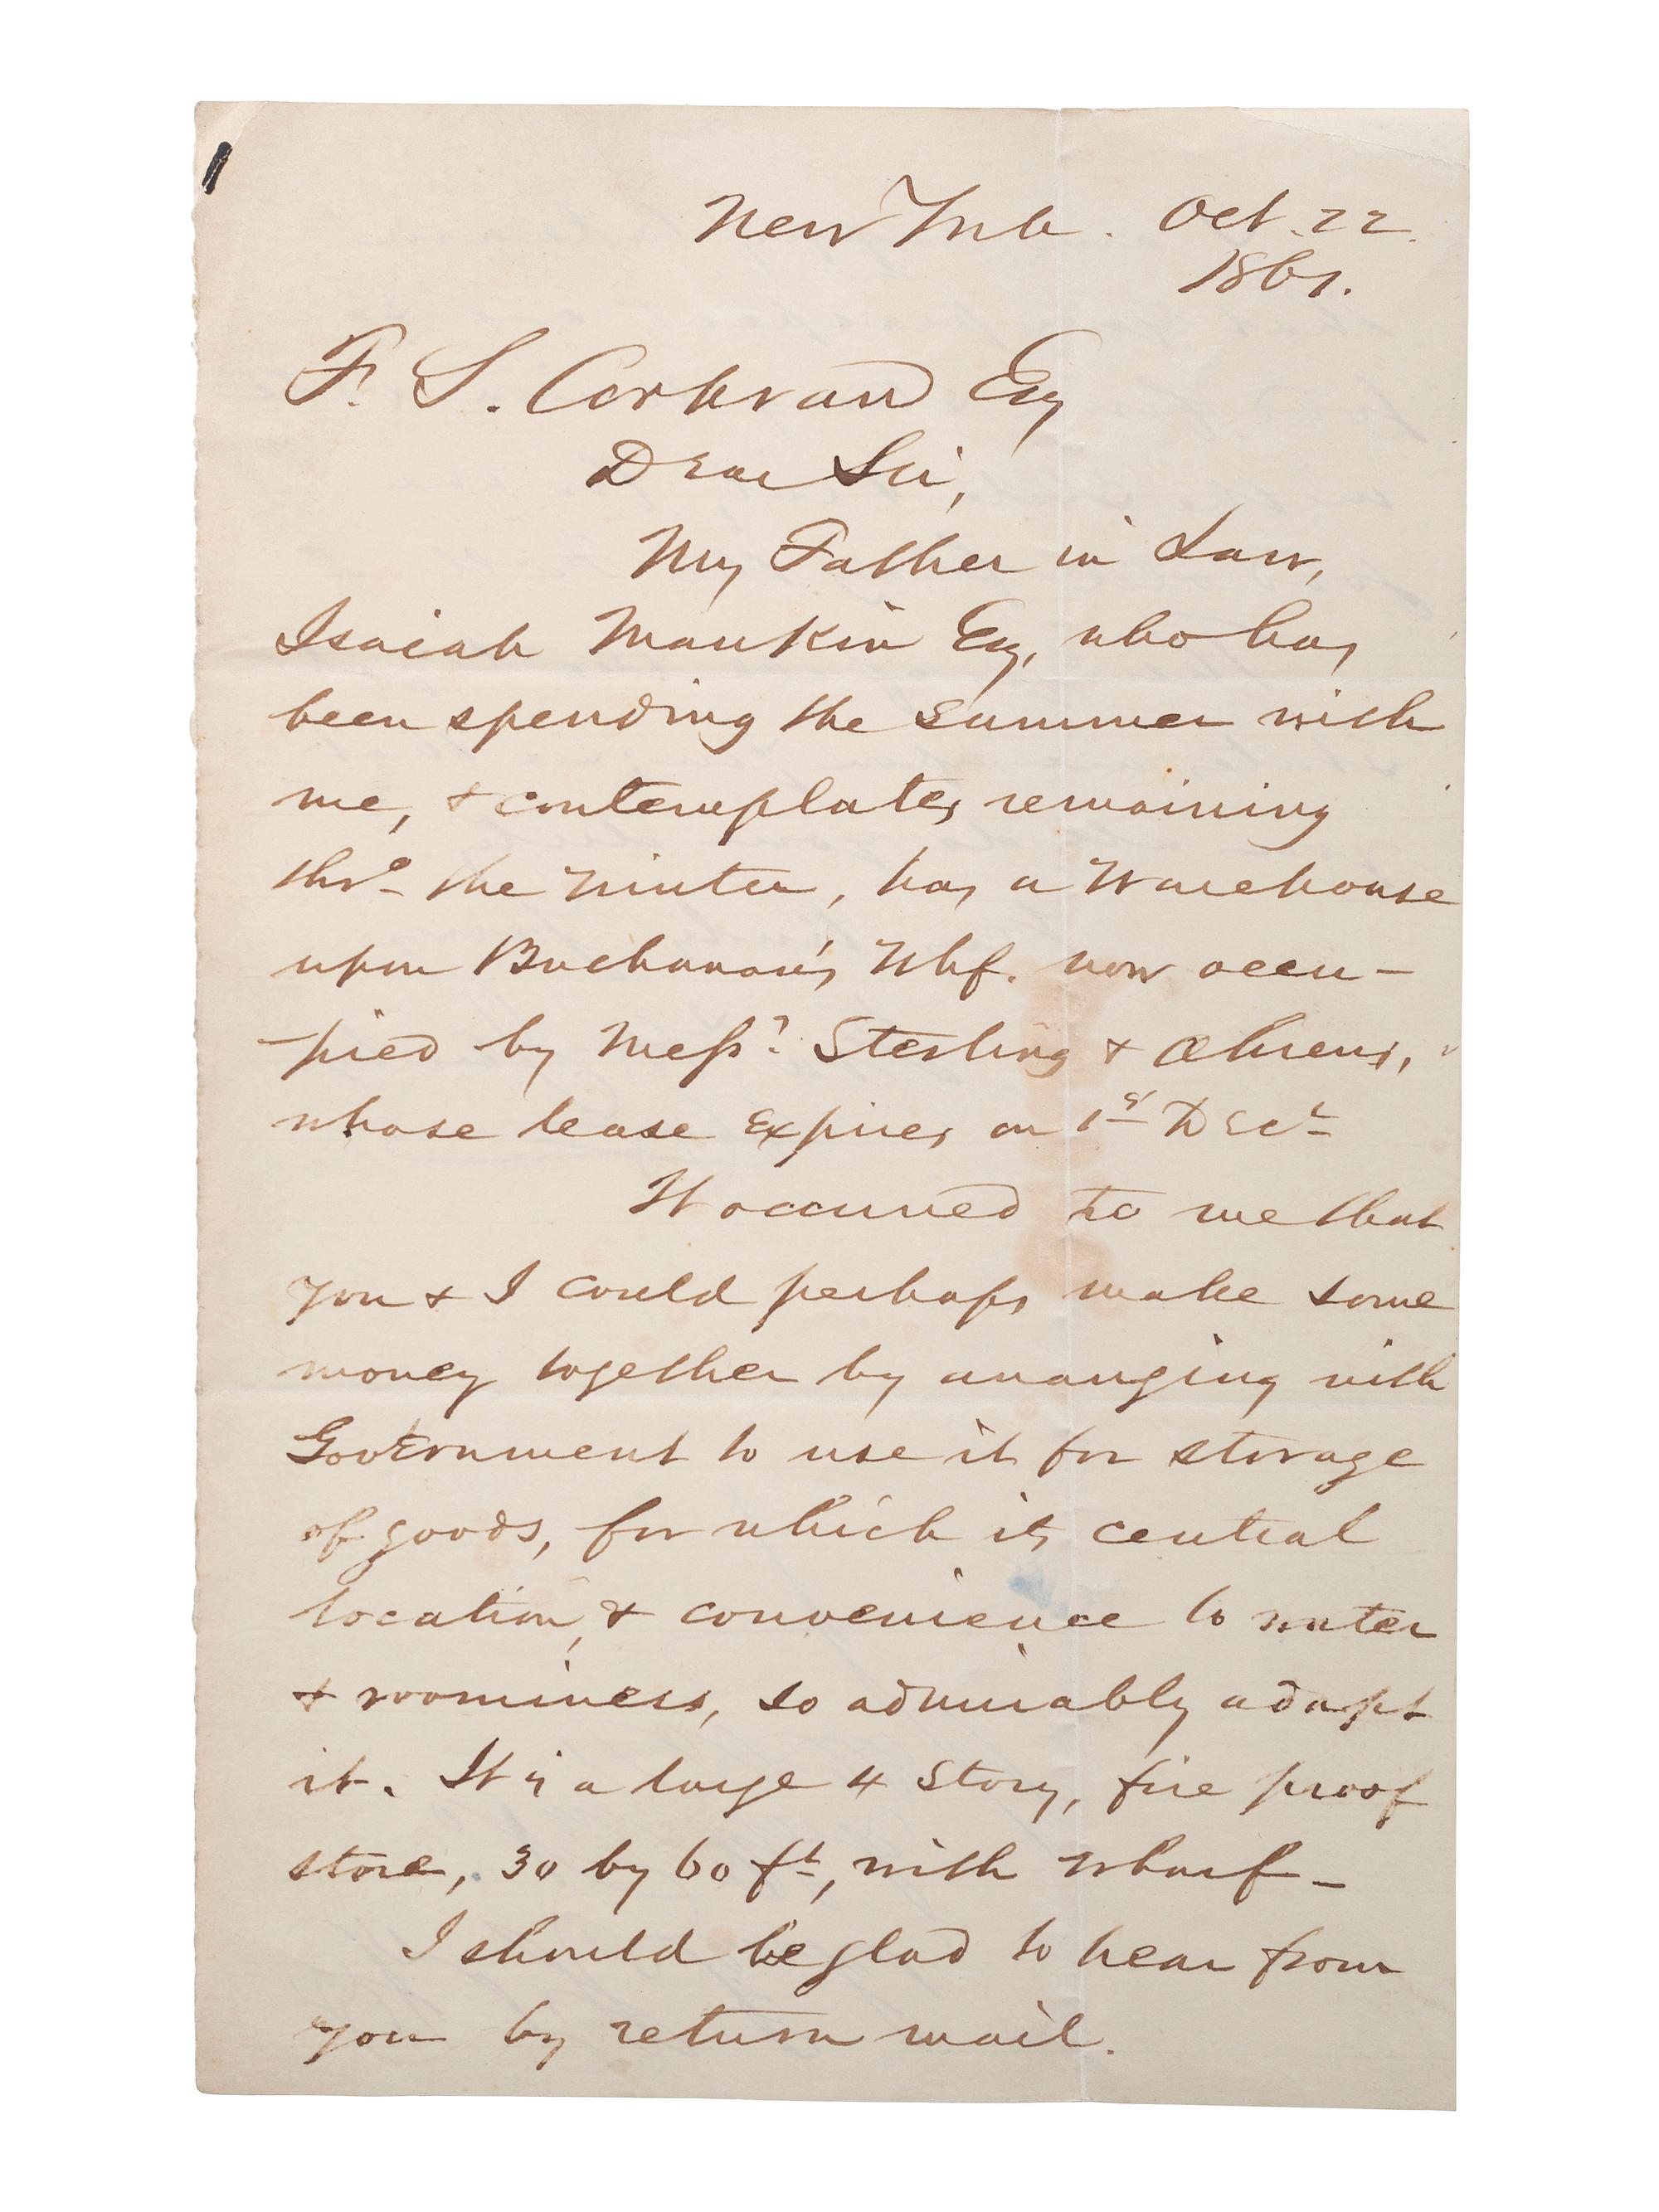 New York. Oct. 22.
1861.
F. S. Corkran Esq
Dear Sir,
My Father in Law,
Isaiah Mankin Esq, who has
been spending the summer with
me, & contemplates remaining
thro the Winter, has a Warehouse
upon Buchanan's Whf. now occu-
pied by Messrs. Sterling & Ahrens,
whose lease expires on 1st Decr
It occurred to me that
you & I could perhaps make some
money together by arranging with
Government to use it for storage
of goods, for which its central
location, & convenience to water
& roominess, so admirably adapt
it. It is a large 4 Story, fire proof
store, 30 by 60 ft, with wharf -
I should be glad to hear from
you by return mail.